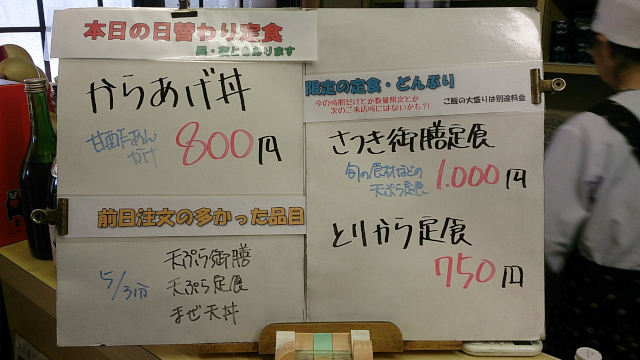 本日の日替わり定食
昼・夜ともあります
からあげ丼
甘酢あん
かけ
800円
前日注文の多かった品目
5/3分
天ぷら御膳
天ぷら定食
まぜ天丼
限定の定食・どんぶり
今の時期だけとか数量限定とか
次のご来店時にはないかも?!
ご飯の大盛りは別途料金
さつき御膳定食
旬の食材などの
天ぷら定食
1.000円
とりから定食
750円